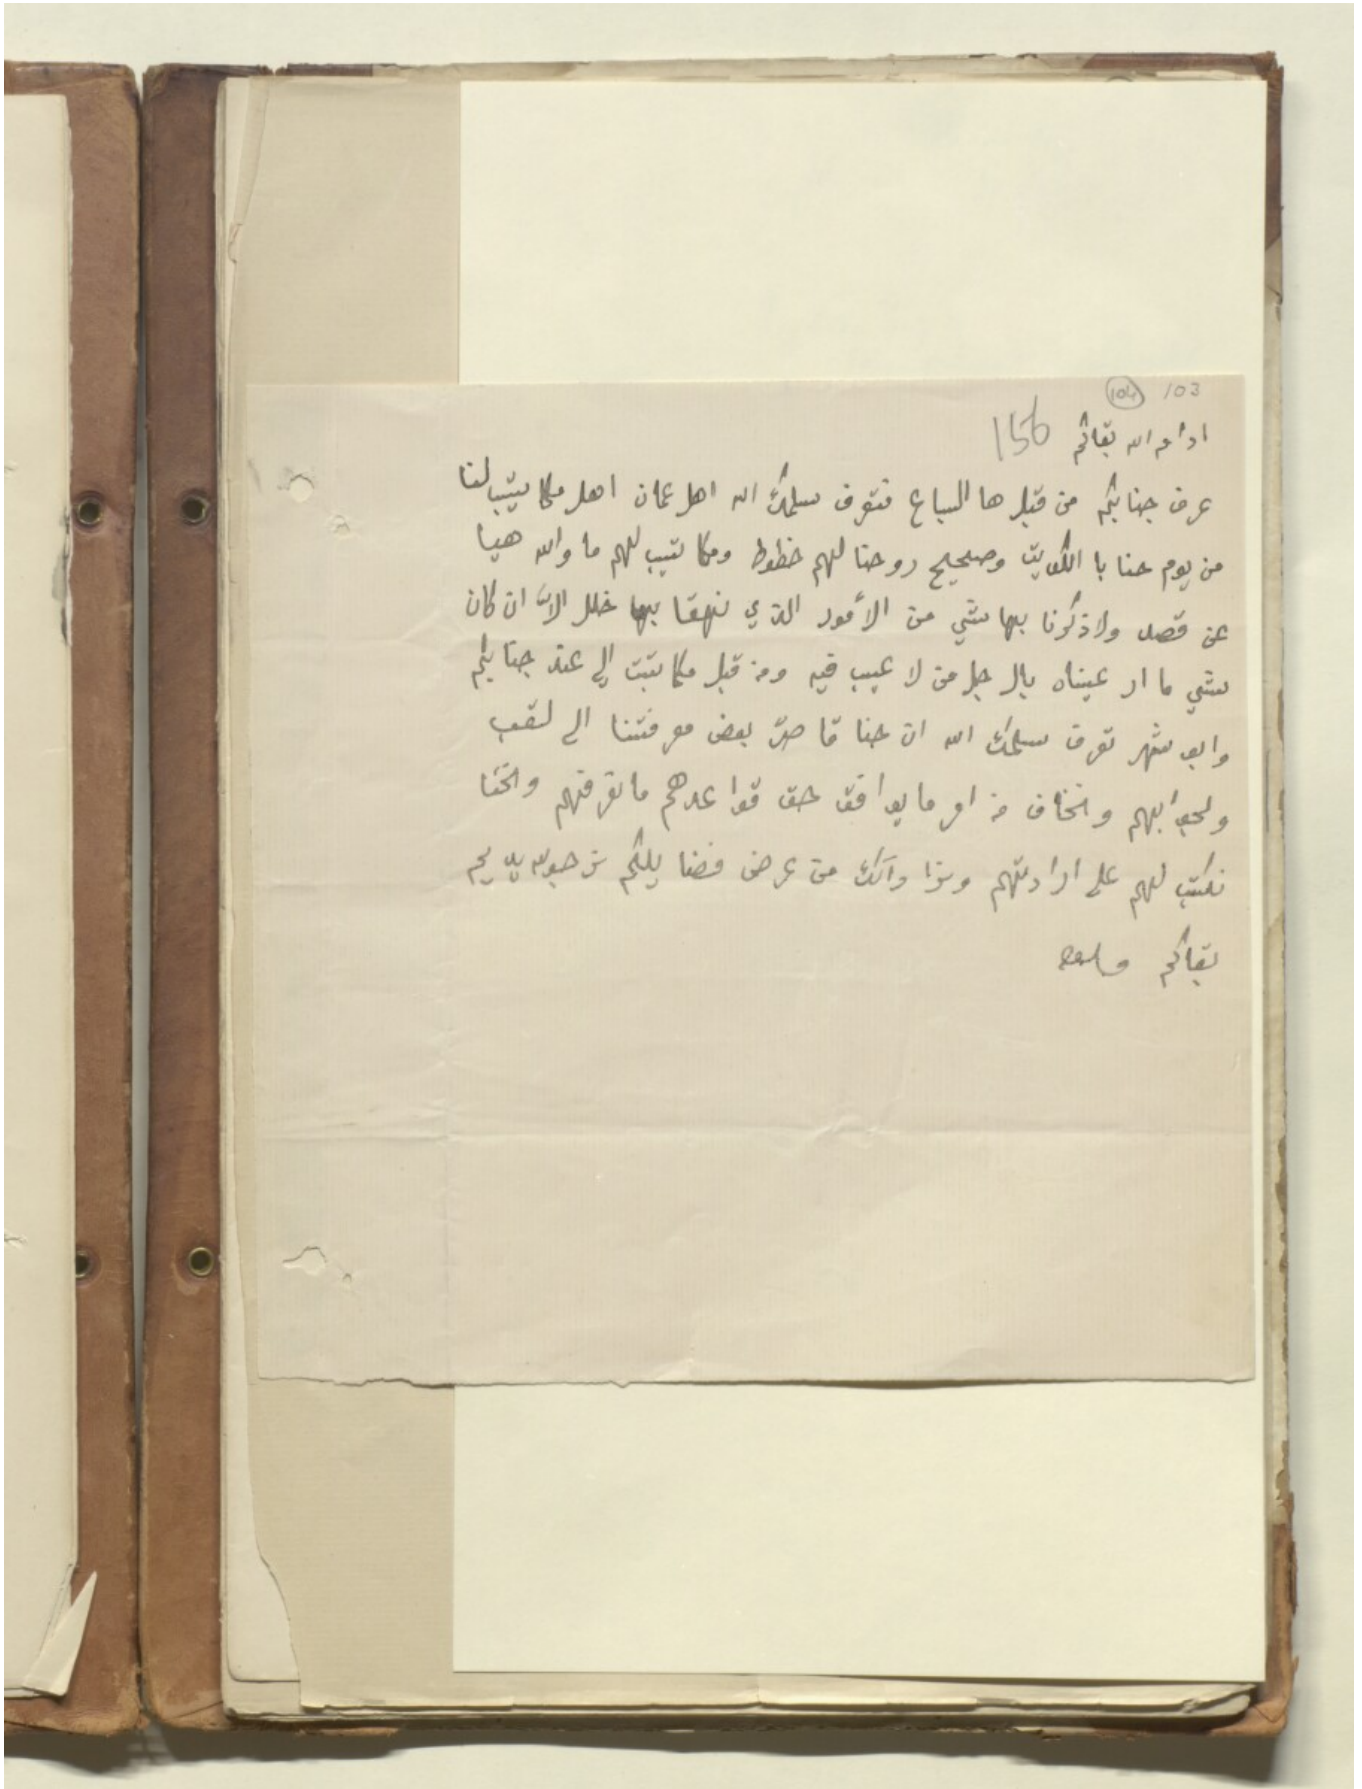 103 104
ادام الله بقاكم 156
عرف جنابكم من قبل ها السباع فتعرف سلمك الله اهل عمان اهل مكاتيب لنا
من يوم حنا با الكويت وصحيح روحنا لهم خطوط ومكاتيب لهم ما والله هيا
عن قصد ولا ذكرنا بها شي من الأمور الذي بها خلل الان ان كان
شي ما ار عيناه بال جل من لا عيب فيه ومن قبل مكاتبت الى عند جنابكم
وابو شهر تعرف سلمك الله ان حنا قاصرة بعض معرفتنا الى
وانخاف من امر ما يوافق حق قواعدهم ما تعرفهم وانخا
نكتب لهم على ارادتهم من عرض فضايلكم يديم
بقاكم